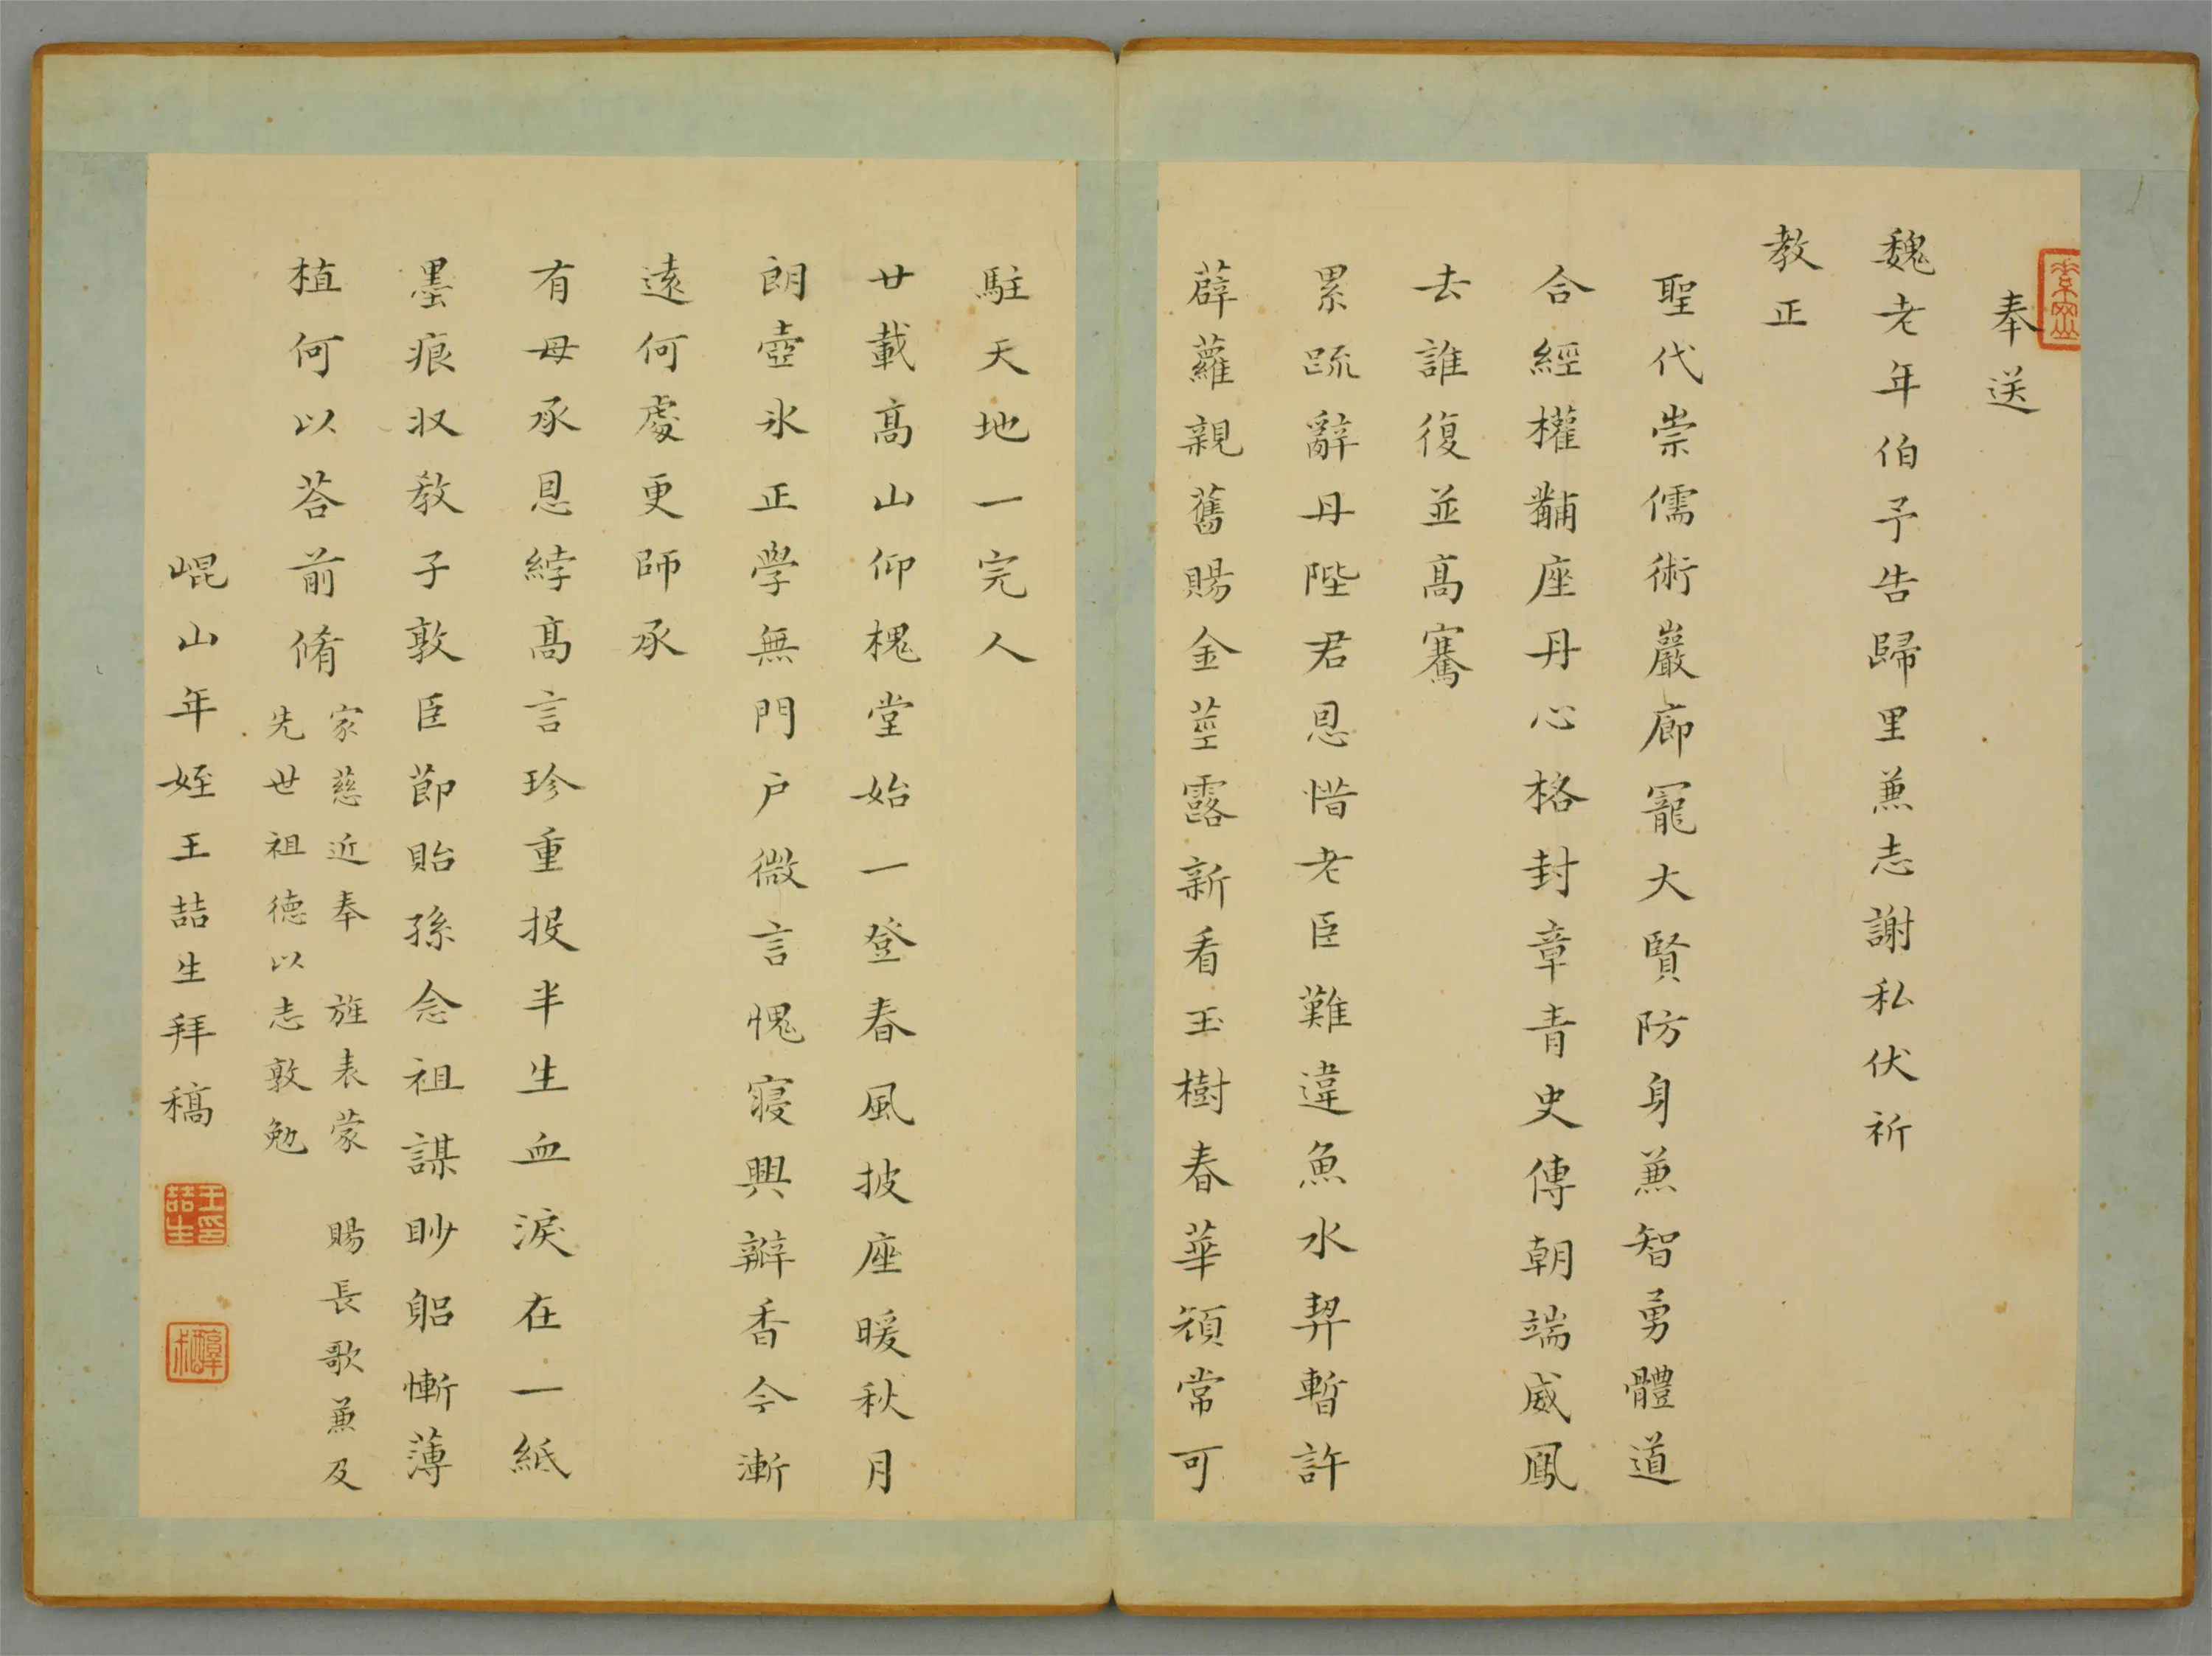 奉送
魏老年伯予告歸里兼志謝私伏祈
教正
聖代崇儒術巖廊寵大賢防身兼智勇體道
合經權黼座丹心格封章青史傳朝端威鳳
去誰復並高騫
累疏辭丹陛君恩惜老臣難違魚水契暫許
薜蘿親舊賜金莖露新看玉樹春華顛常可
駐天地一完人
廿載高山仰槐堂始一登春風披座暖秋月
朗壺氷正學無門戶微言愧寢興瓣香今漸
遠何處更師承
有母承恩綍高言珍重投半生血淚在一紙
墨痕收教子敦臣節貽孫念祖謀眇躬慚薄
植何以荅前脩
家慈近奉 旌表蒙 賜長歌兼及
先世祖德以志敦勉
崐山年姪王喆生拜稿
王喆生印
醇叔